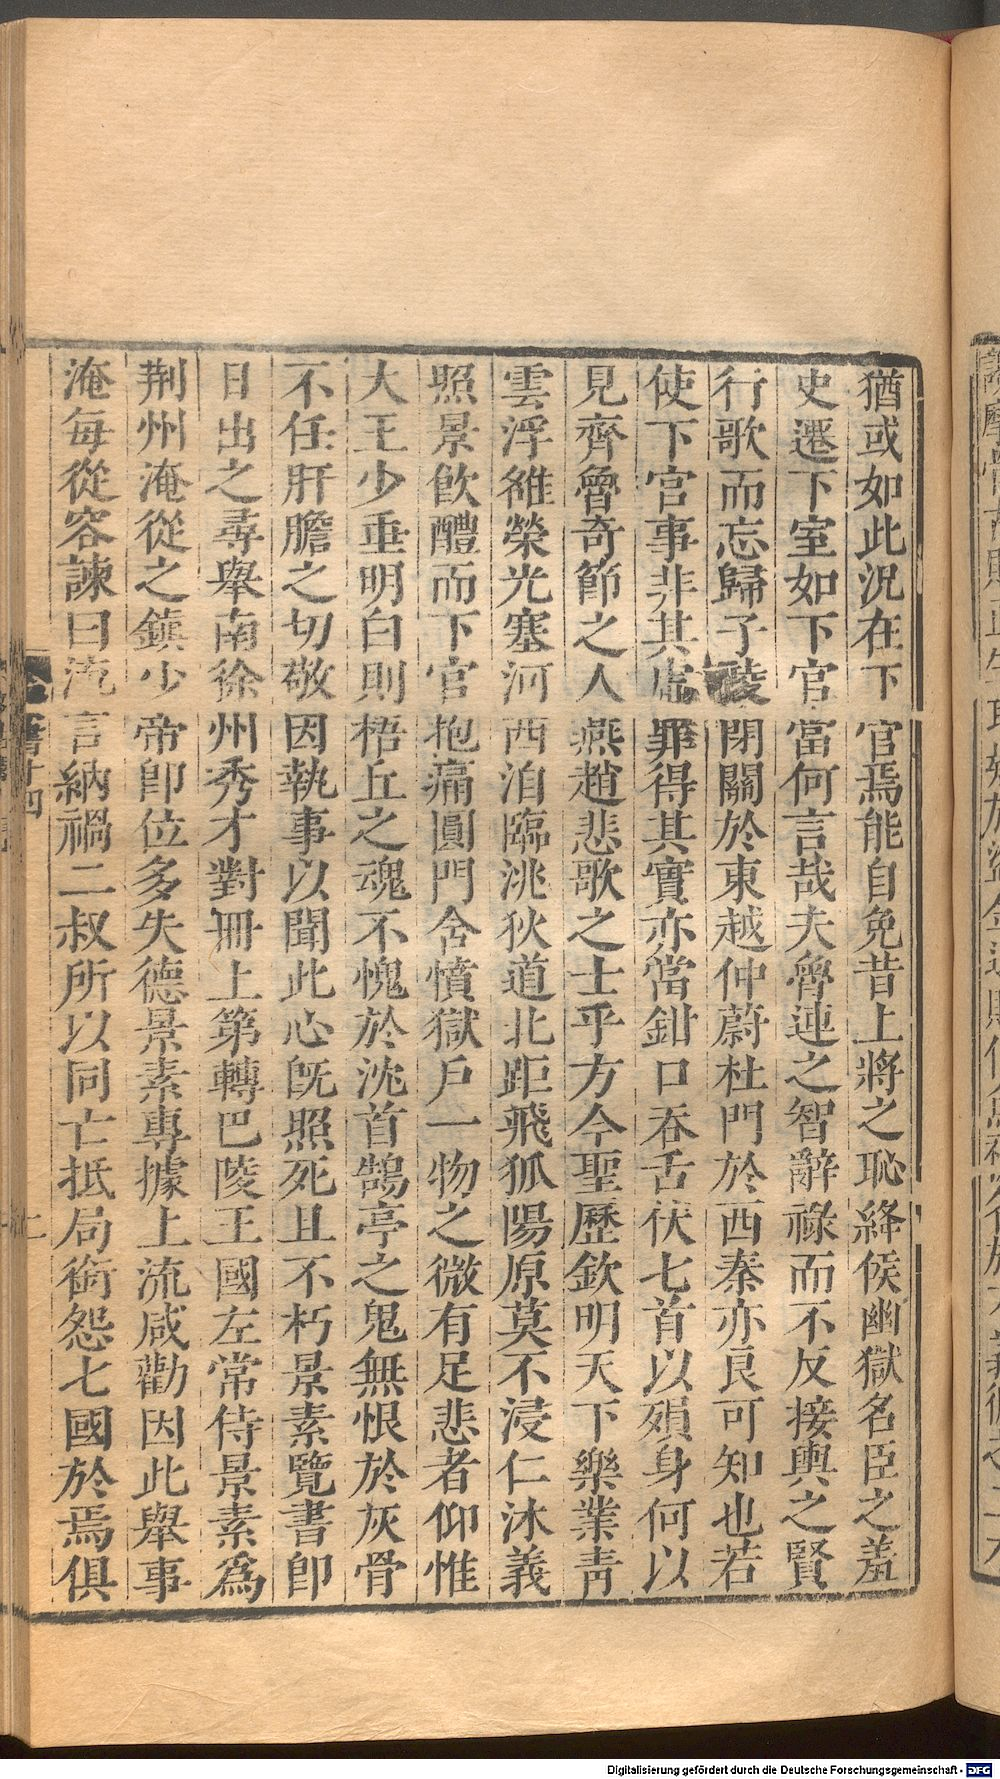 猶或如此況在下官焉能自免昔上將之恥絳侯幽獄名臣之羞
史遷下室如下官當何言哉夫魯連之智辭祿而不反接輿之賢
行歌而忘歸子陵閉關於東越仲蔚杜門於西秦亦良可知也若
使下官事非其虛罪得其實亦當鉗口吞舌伏七首以殞身何以
見齊魯奇節之人燕趙悲歌之士乎方今聖歷欽明天下樂業靑
雲浮雒榮光塞河西洎臨洮狄道北距飛狐陽原莫不浸仁沐義
照景飮醴而下官抱痛圓門含憤獄戶一物之微有足悲者仰惟
大王少垂明白則梧丘之魂不愧於沈首鵠亭之鬼無恨於灰骨
不任肝膽之切敬因執事以聞此心旣照死且不朽景素覽書卽
日出之尋舉南徐州秀才對冊上第轉巴陵王國左常侍景素爲
荆州淹從之鎭少帝卽位多失德景素專據上流咸勸因此舉事
淹每從容諫曰流言納禍二叔所以同亡抵局銜怨七國於焉俱
書十四
Digitalisierung gefördert durch die Deutsche Forschungsgemeinschaft - DFG